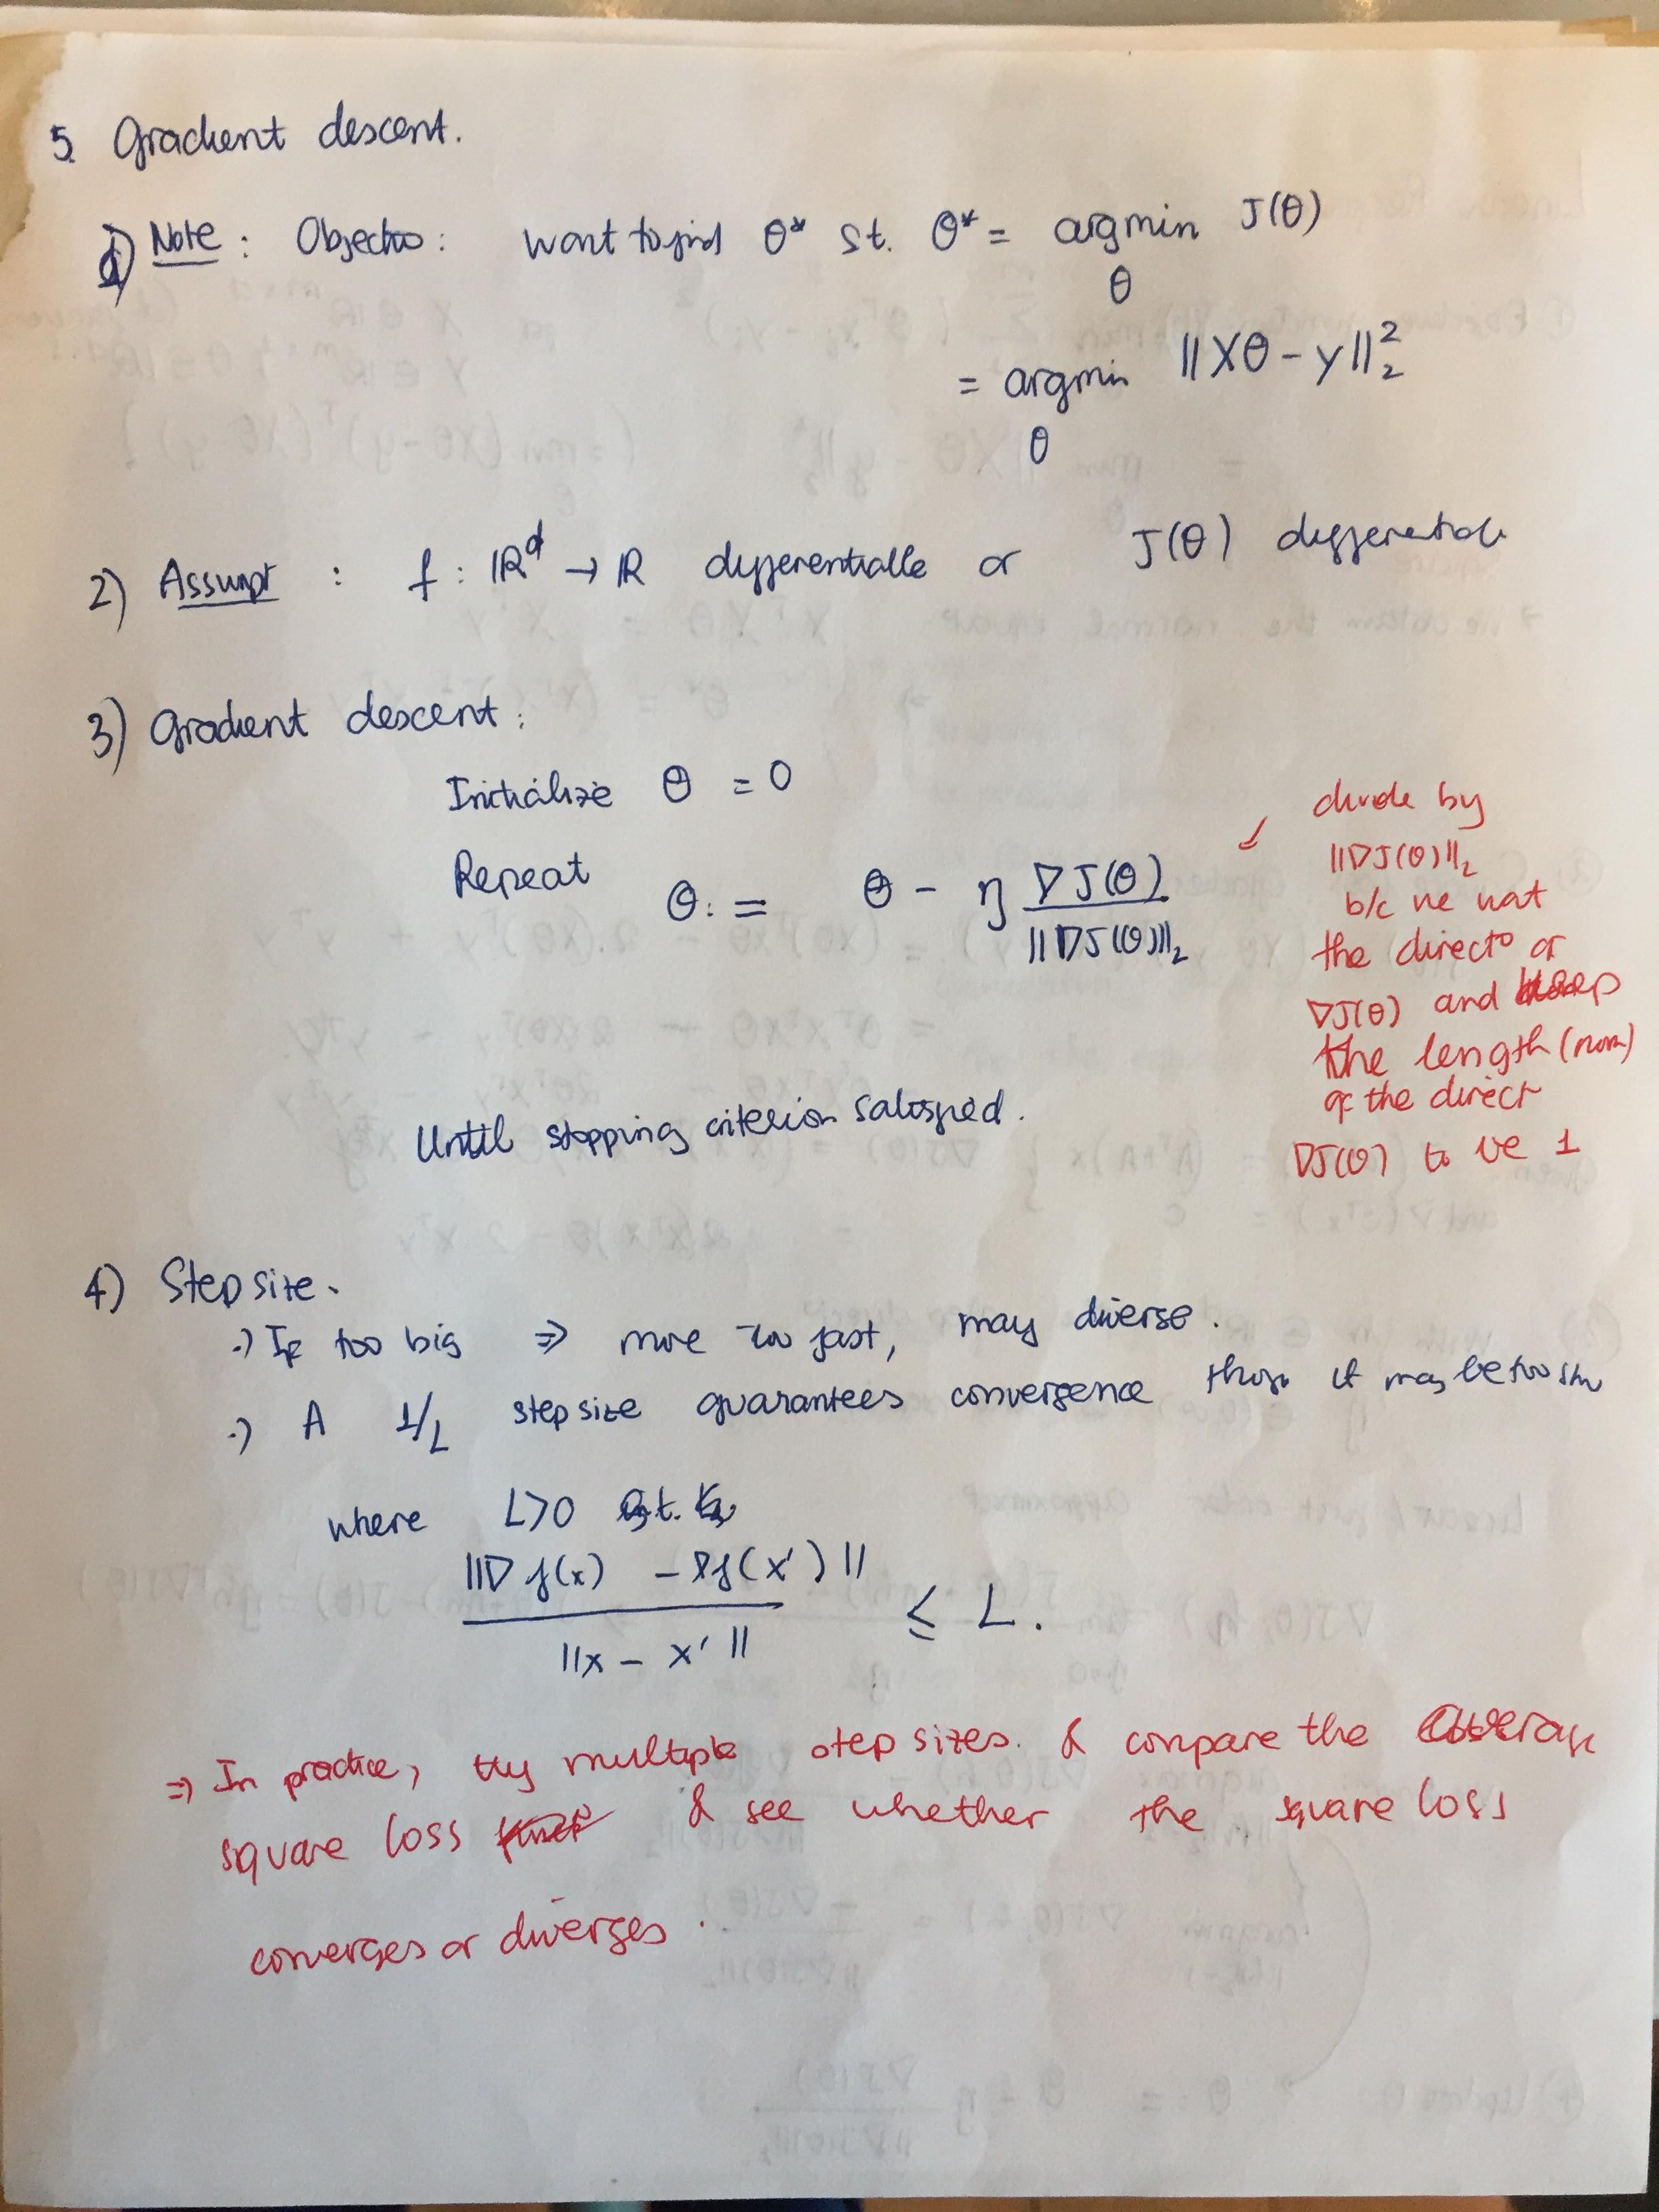 5. Gradient descent.
1) Note : Objectio : want to find θ* st. θ* = argmin J(θ)
θ
= argmin ||Xθ - y||₂²
θ
2) Assumpt : f : ℝᵈ → ℝ differentiable or J(θ) differentiable
3) Gradient descent :
Initialize θ = 0
Repeat
θ := θ - η ∇J(θ) / ||∇J(θ)||₂
divide by
||∇J(θ)||₂
b/c we want
the direct° of
∇J(θ) and keep
the length (norm)
of the direct
∇J(θ) to be 1
Until stopping criterion satisfied.
4) Step size.
·) If too big ⇒ move too fast, may diverse.
·) A 1/L step size guarantees convergence though it may be too slow
where L>0 s.t.
||∇f(x) - ∇f(x')|| / ||x - x'|| ≤ L.
⇒ In practice, try multiple step sizes. & compare the average
square loss & see whether the square loss
converges or diverges.